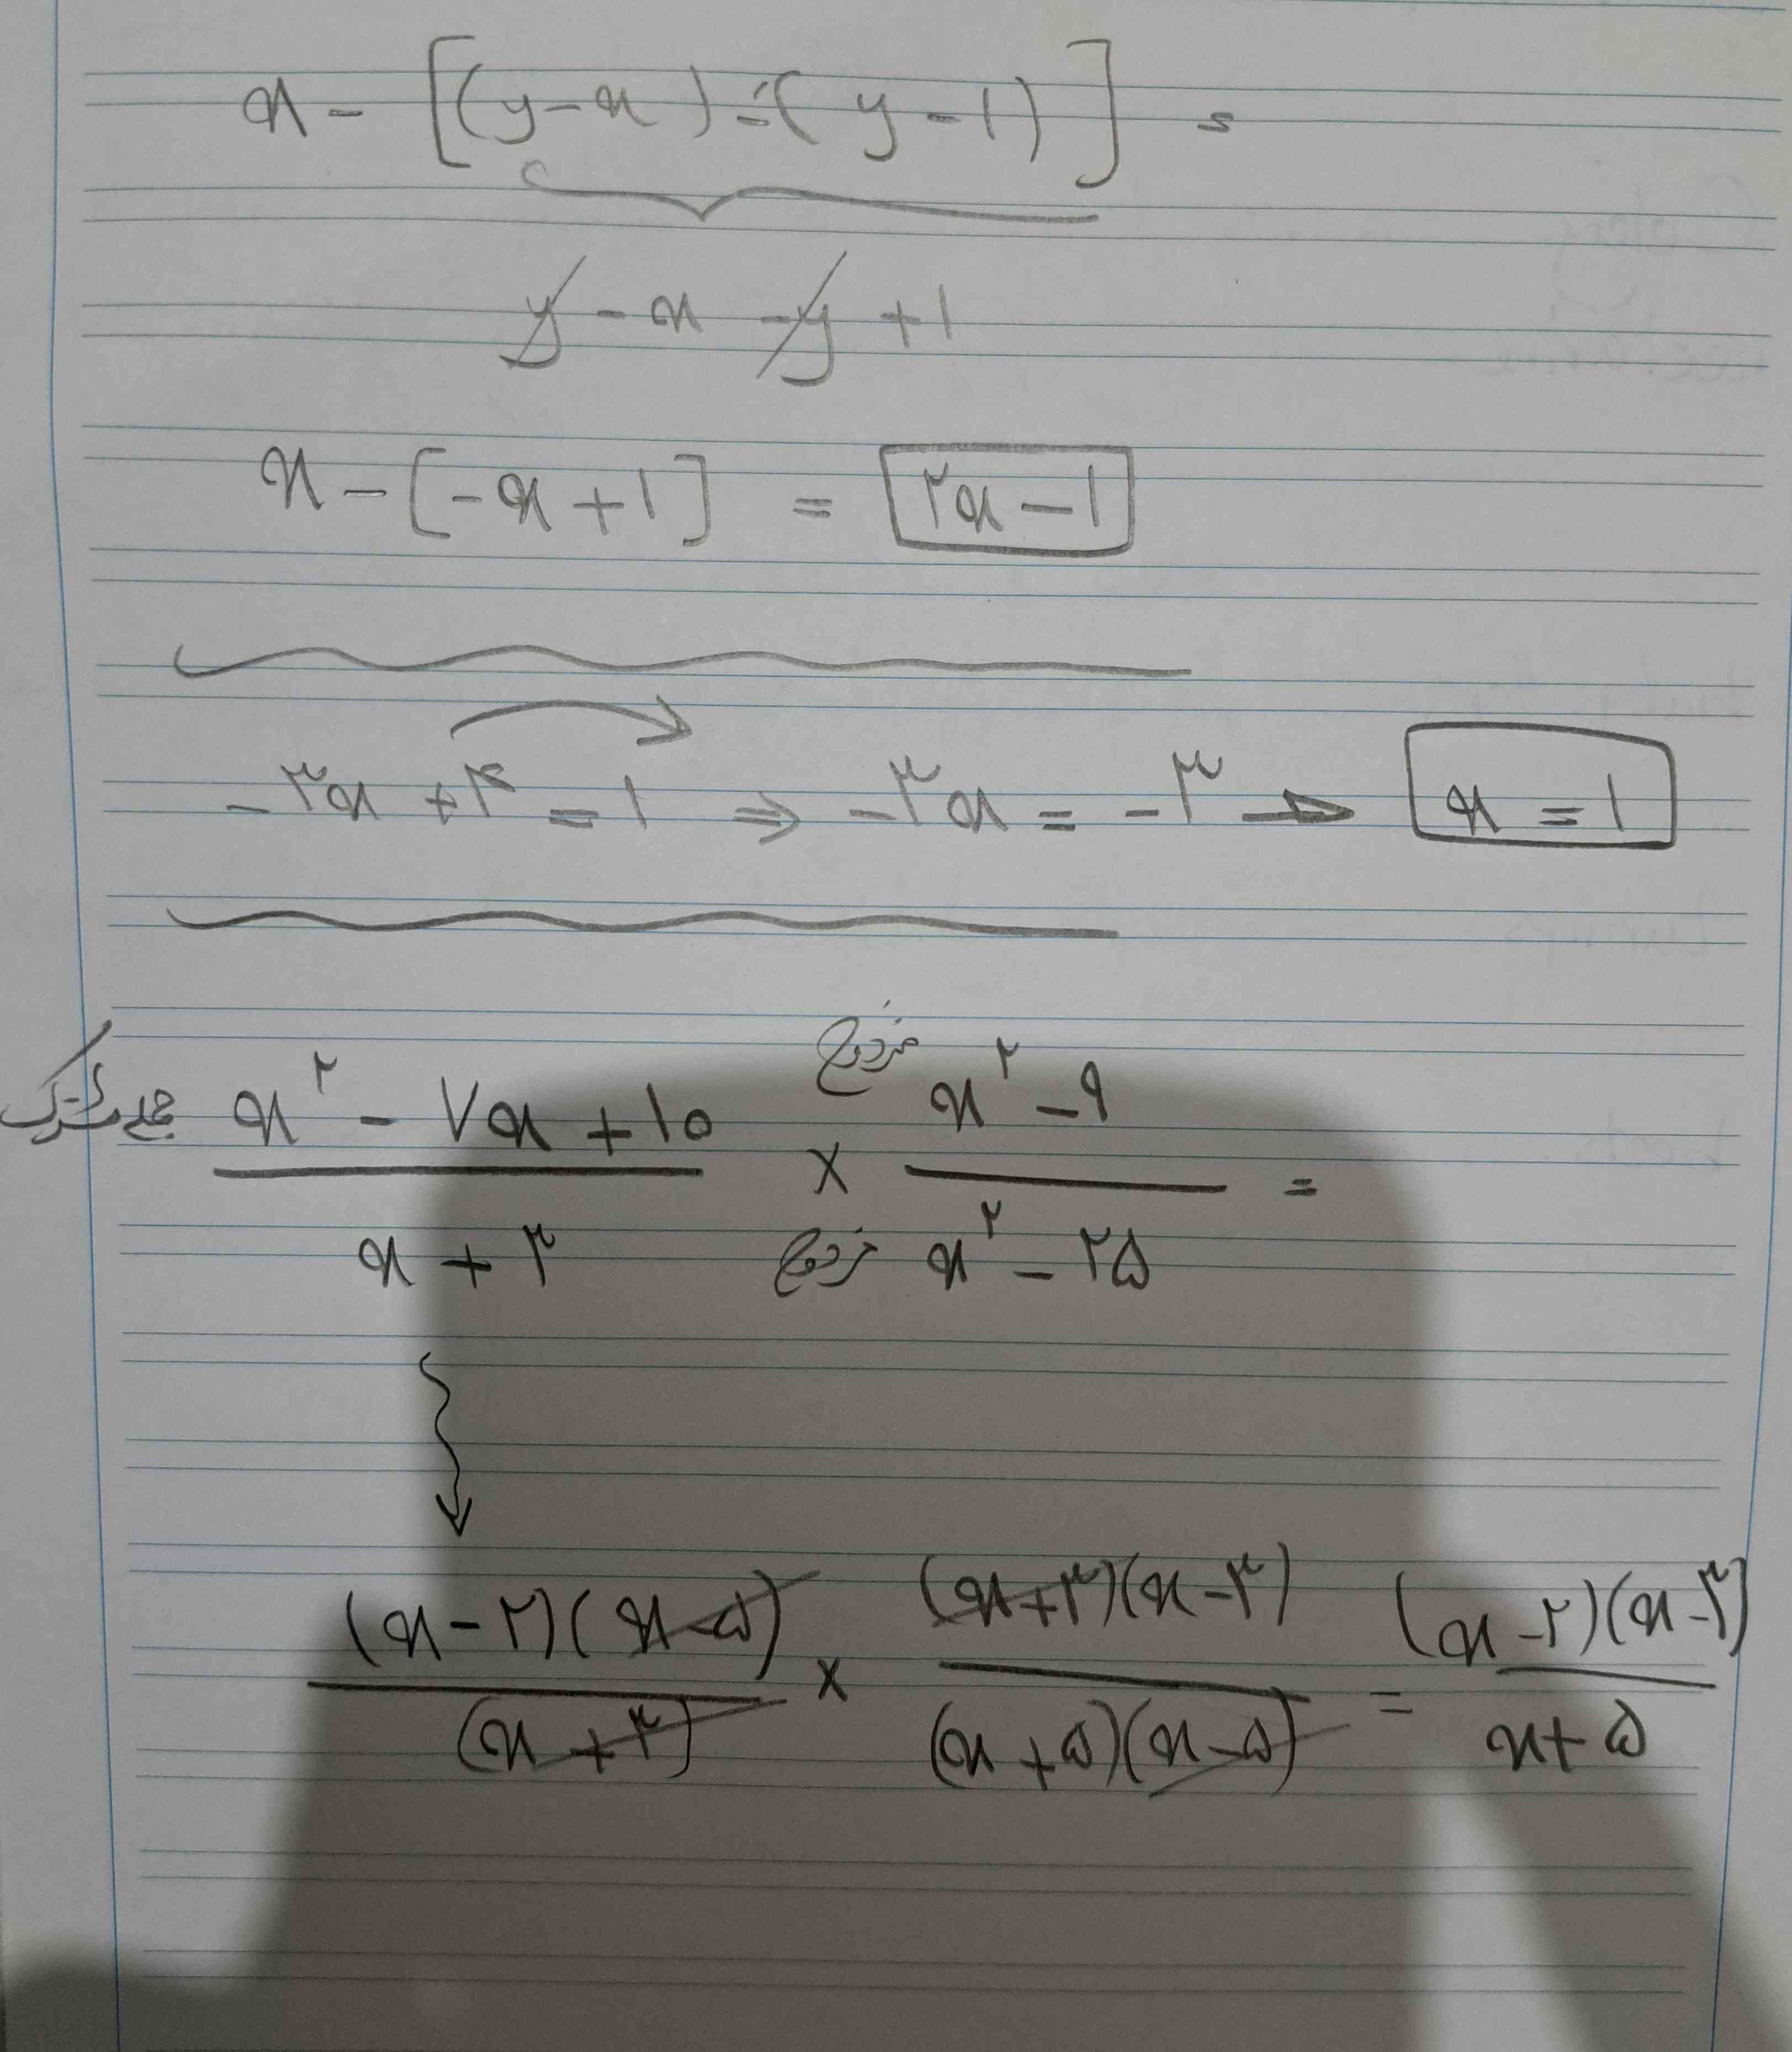 x - [(y-x) - (y-1)] =
y - x - y + 1
x - [-x+1] = ۲x - ۱
-۳x + ۴ = ۱ ⇒ -۳x = -۳ → x = ۱
جمله مشترک x² - ۷x + ۱۰ / x + ۳ × مزدوج x² - ۹ / مزدوج x² - ۲۵ =
(x-۲)(x-۵) / (x+۳) × (x+۳)(x-۳) / (x+۵)(x-۵) = (x-۲)(x-۳) / x+۵